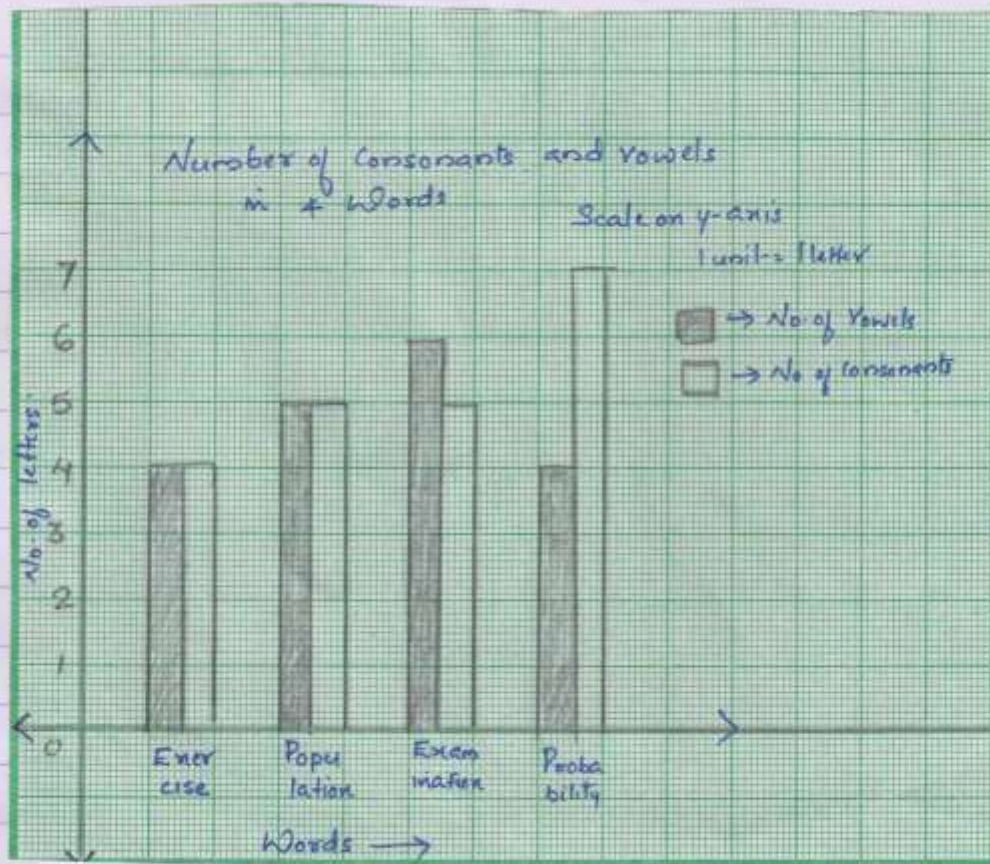 Number of Consonants and vowels
in 4 Words
Scale on y-axis
1 unit = 1 letter
7
→ No. of Vowels
6
→ No of consonants
5
No. of letters
4
3
2
1
0
Exer
cise
Popu
lation
Exam
ination
Proba
bility
Words →